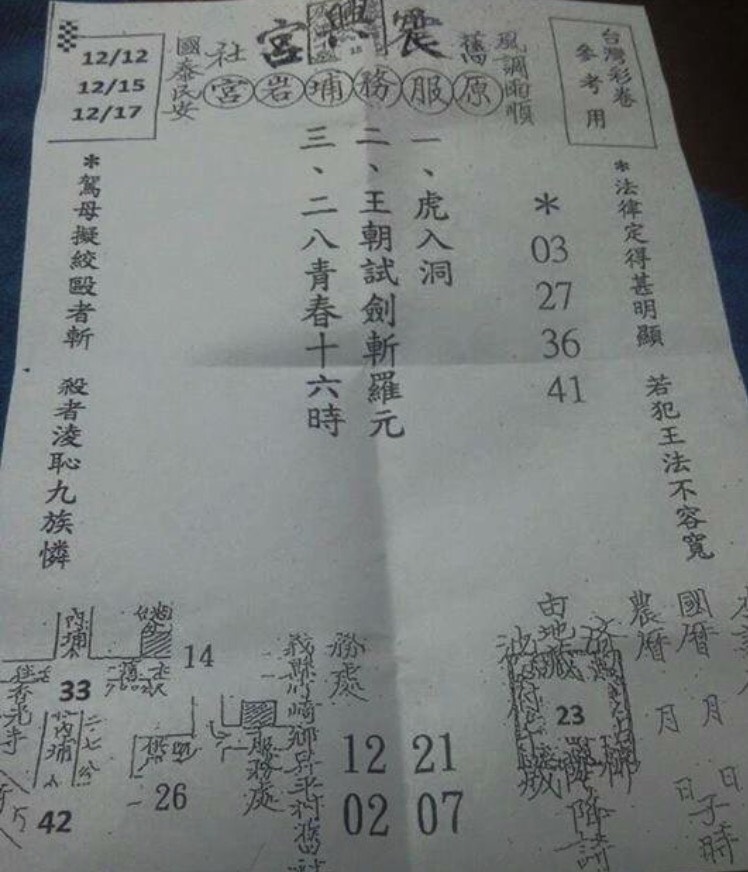 12/12
12/15
12/17
國泰民安
社
宮興震
舊
風調雨順
宮岩埔務服原
台灣彩卷
參考用
*法律定得甚明顯 若犯王法不容寬
*
03
27
36
41
一、虎入洞
二、王朝試劍斬羅元
三、二八青春十六時
*駕母擬絞毆者斬 殺者淩恥九族憐
內埔
14
33
往香光寺
內埔
26
42
服務處
務處
12 21
02 07
由地藏
23
降詩
國曆 月 日
農曆 月 日
子時